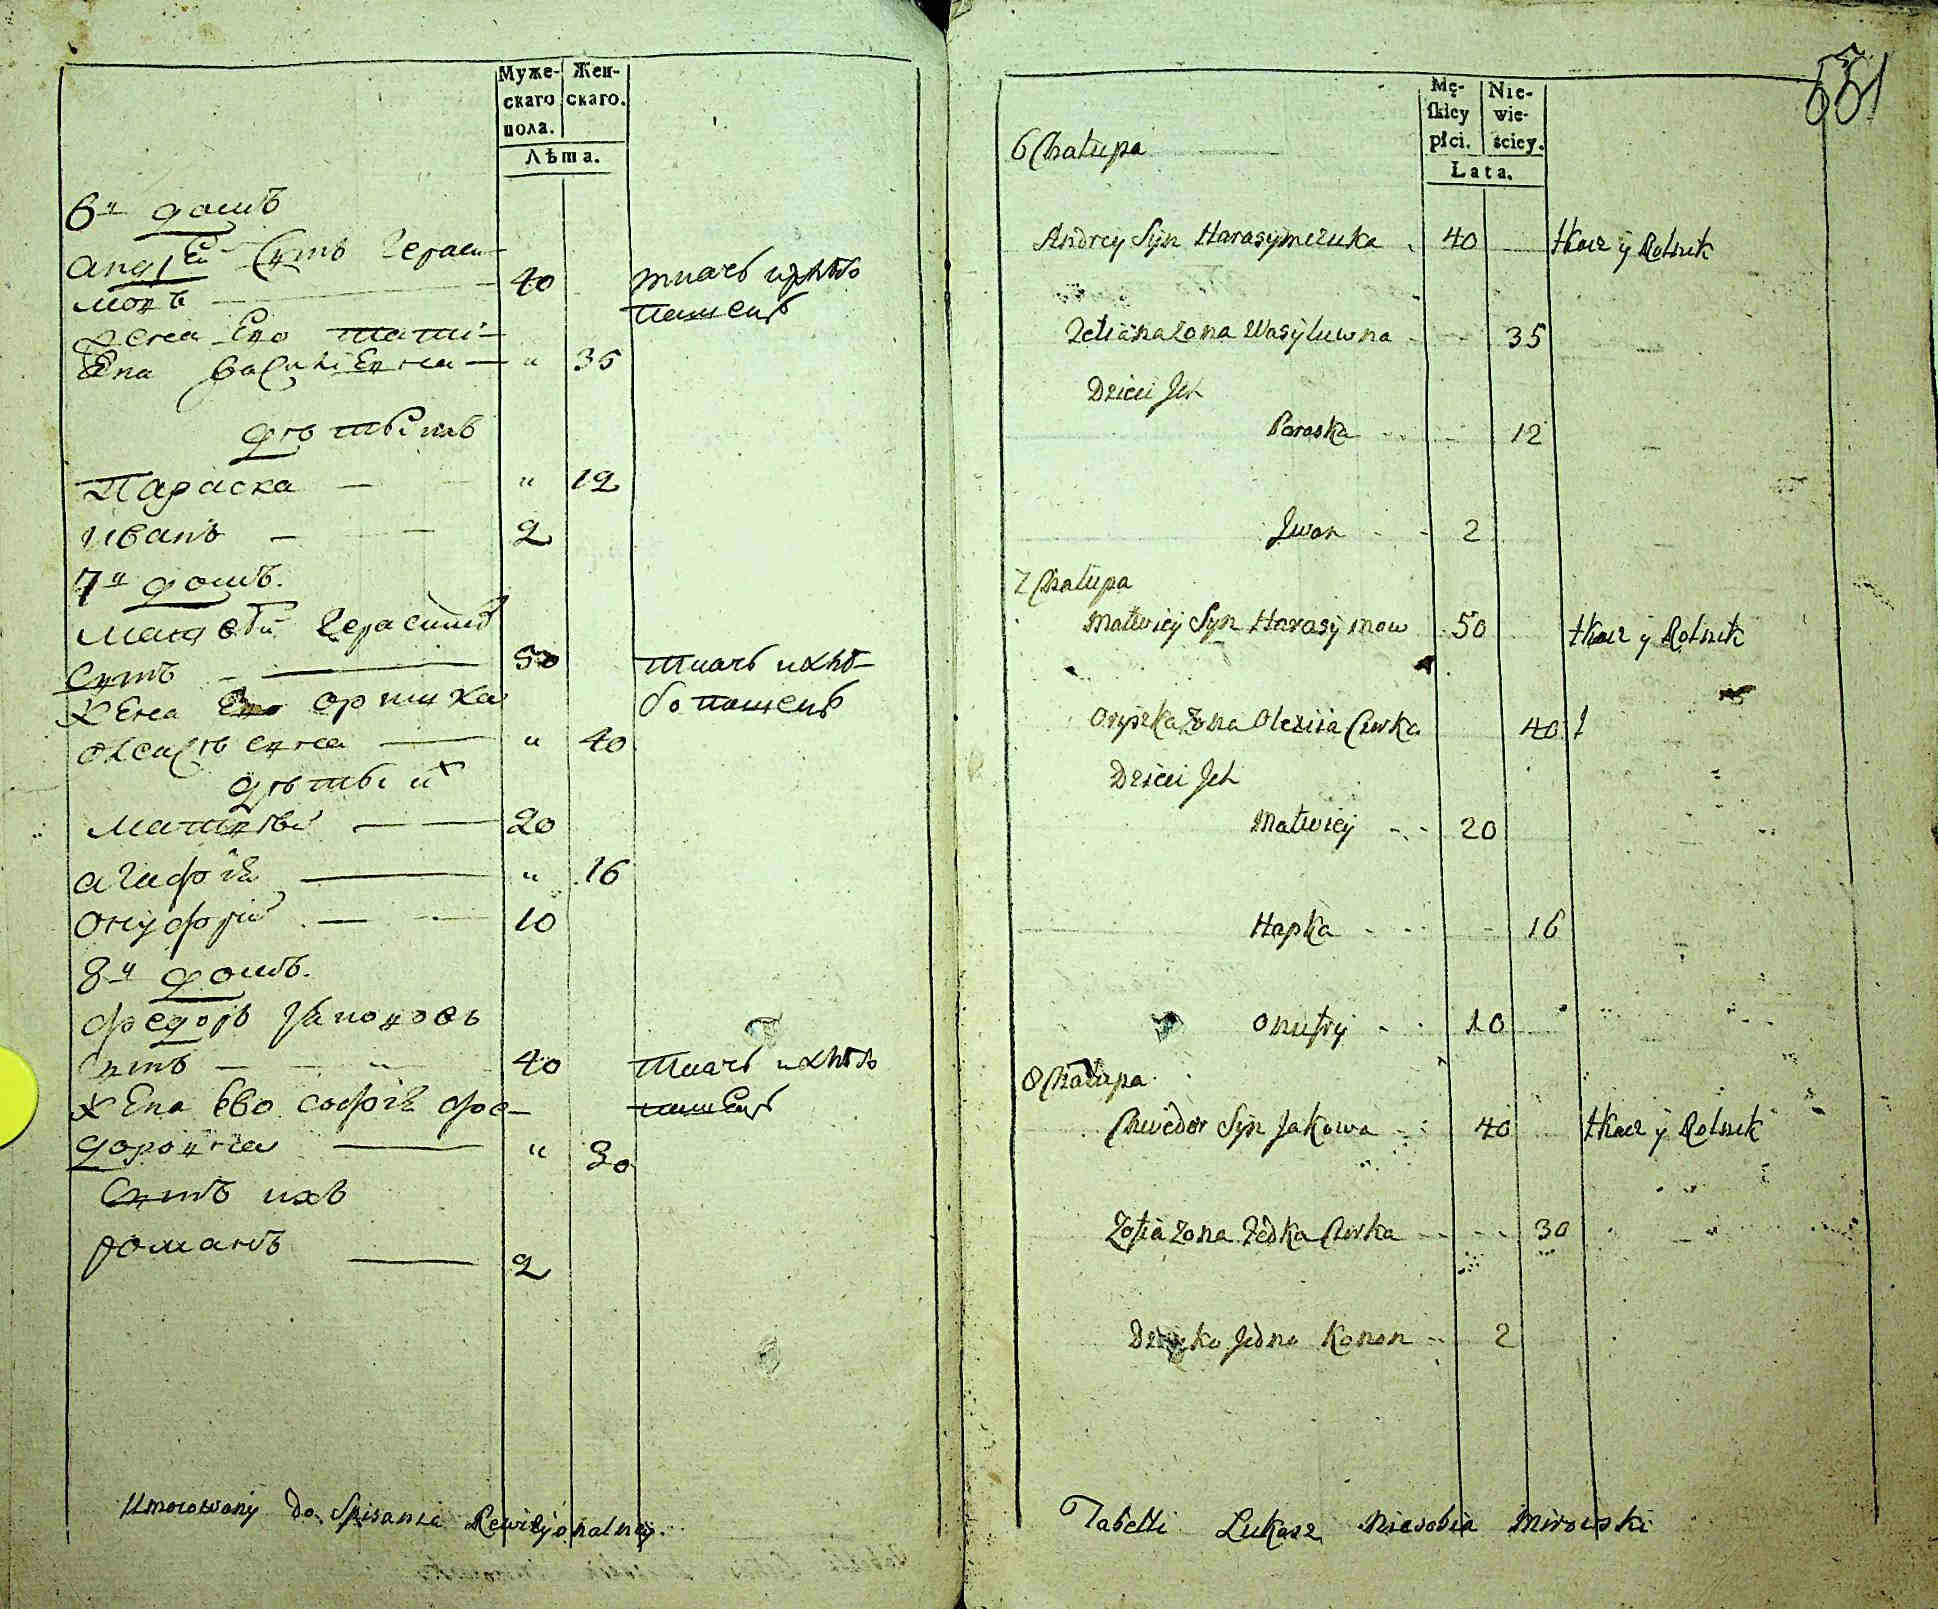 Муже-
скаго
пола.
Жен-
скаго.
Лѣта.
6й домъ
Андрей Сынъ Гераси-
мовъ 40 ткачъ и хлѣбо
пашецъ
жена Его тати-
Ена Василіевна " 35
дѣти ихъ
Параска " 12
Иванъ 2
7й домъ.
Матвѣй Герасимовъ
Сынъ 50 ткачъ и хлѣ-
бопашецъ
жена Его оришка
Олексѣевна " 40
дѣти их
Матвѣй 20
агафія " 16
Онуфрій 10
8й домъ.
федоръ Яковов
Сынъ 40 ткачъ и хлѣбо
пашецъ
жена Ево софія фе-
доровна " 30
Сынъ ихъ
романъ 2
Umocowany do Spisania Rewizyonalney.
551
Mę-
skiey
płci.
Nie-
wie-
ściey.
Lata.
6 Chałupa
Andrey Syn Harasymczuka 40 tkacz y Rolnik
Tetiana Żona Wasyluwna 35
Dzieci Jch
Paraska 12
Jwan 2
7 Chałupa
Matwiey Syn Harasymow 50 tkacz y Rolnik
Oryszka Żona Olexiia Curka 40
Dzieci Jch
Matwiey 20
Hapka 16
Onufry 10
8 Chałupa
Chwedor Syn Jakowa 40 tkacz y Rolnik
Zofia Żona Fedka Curka 30
Dziecko Jedno Roman 2
Tabelli Lukasz Niesobia Mirowski